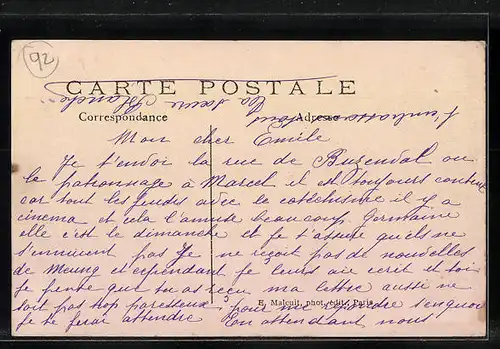 92
CARTE POSTALE
Correspondance
Adresse
t'embrasse tous
ta sœur Blanche
Mon cher Emile
Je t'envoi la rue de Buzenval ou
le patronnage a Marcel il est toujours content
car tout les jeudis avec le catechisme il y a
cinema et cela l'amuse beaucoup Germaine
elle c'est le dimanche et je t'assure qu'ils ne
s'ennuient pas Je ne reçoit pas de nouvelles
de Meung et cependant je leurs ai ecrit et toi
je pense que tu as reçu ma lettre aussi ne
soit pas trop paresseux pour me repondre senquoi
je te ferai attendre En attendant nous
E. Malcuit, phot. édit. Paris